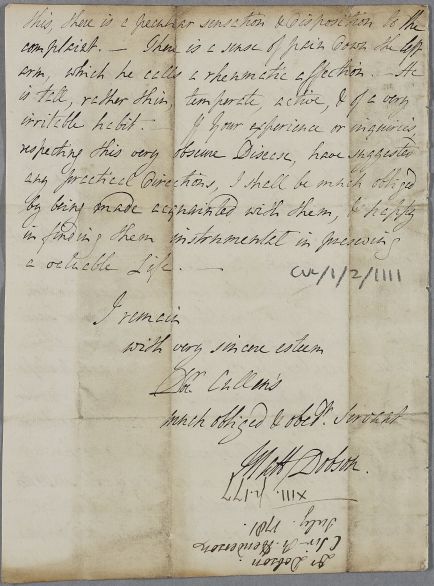 this, there is a peculiar sensation & disposition to the
complaint. — There is a sense of pain down the left
arm, which he calls a rheumatic affection. — He
is tall, rather thin, temperate, active, & of a very
irritable habit. — If your experience or inquiries,
respecting this very obscure Disease, have suggested
any practical Directions, I shall be much obliged
by being made acquainted with them, & happy
in finding them instrumental in preserving
a valuable Life. —
CUL/1/2/1111
I remain
with very sincere esteem
Dr. Cullen's
much obliged & obedt. Servant
Matt Dobson.
Dr. Dobson
C Sir R. Henderson
July. 1781.
XIII. p. 177